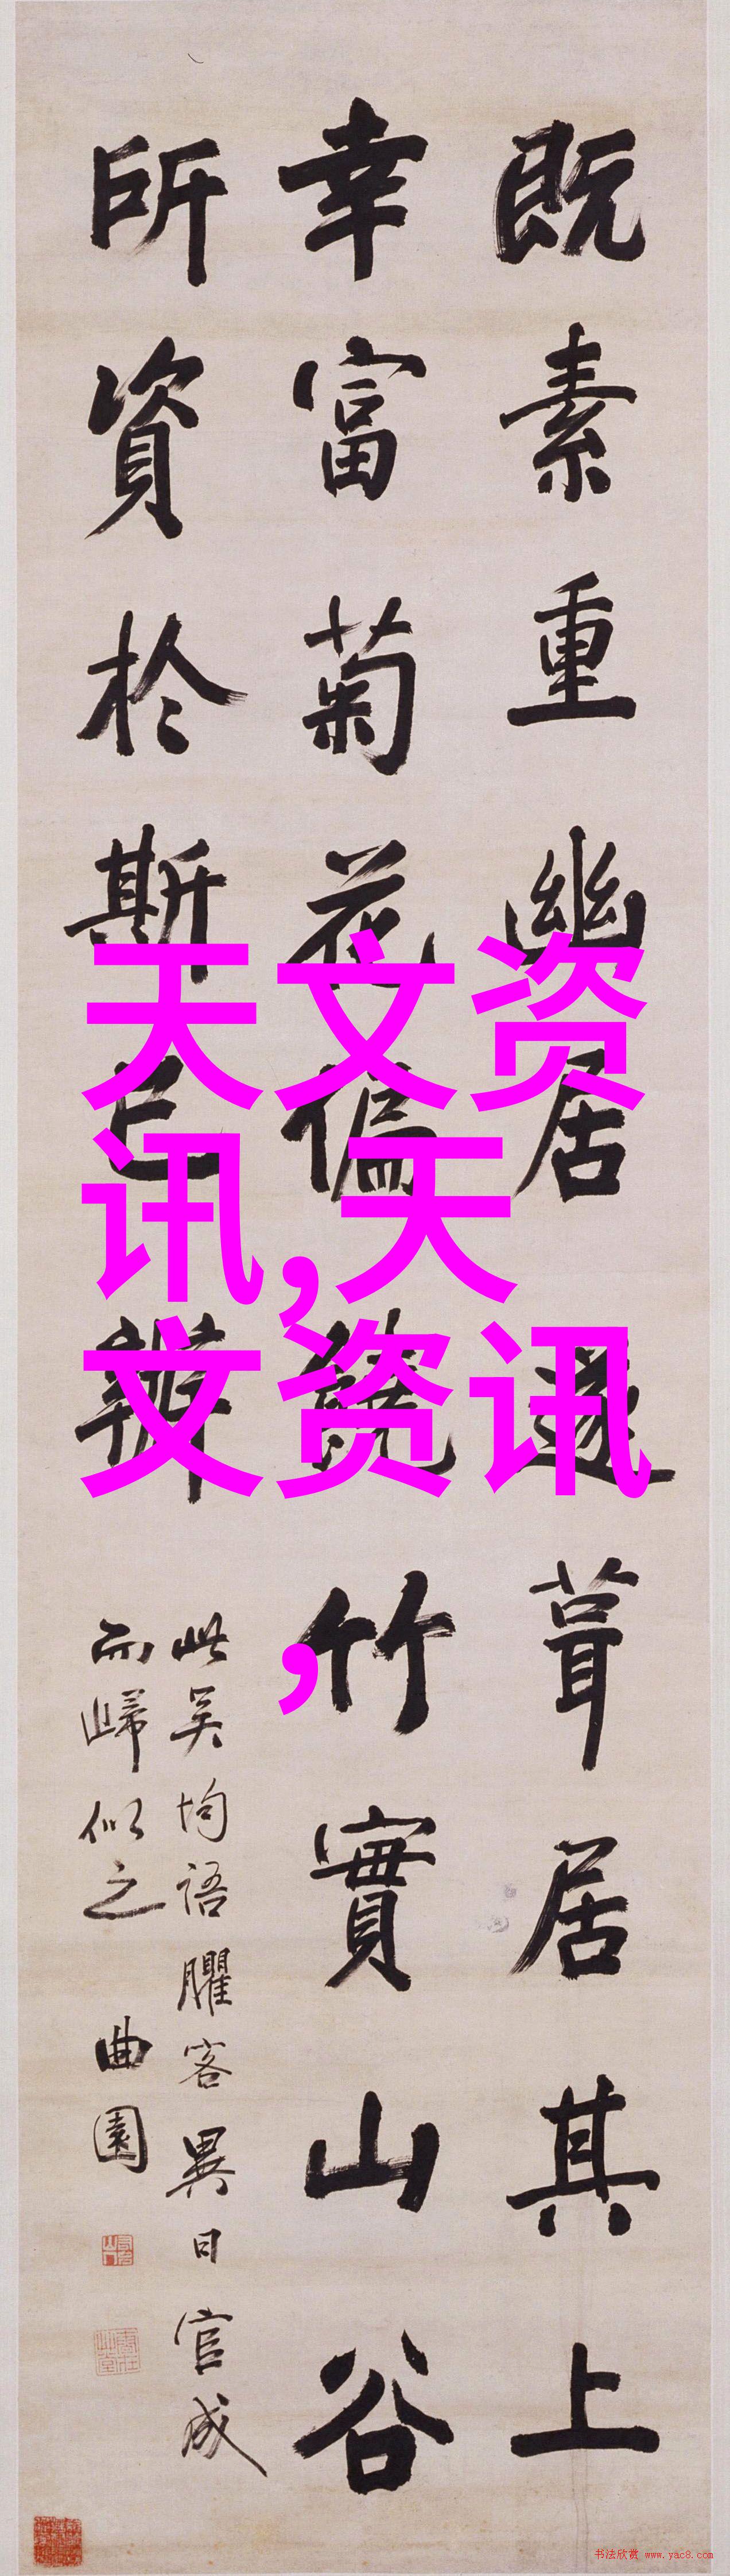 既素重幽居遂葺居其上
幸富菊花偏饒竹實山谷
所資於斯已辦
此吴均語臞客異日官成
而歸似之 曲園
天文资
讯,天
文资讯
,
书法欣赏 www.yac8.com